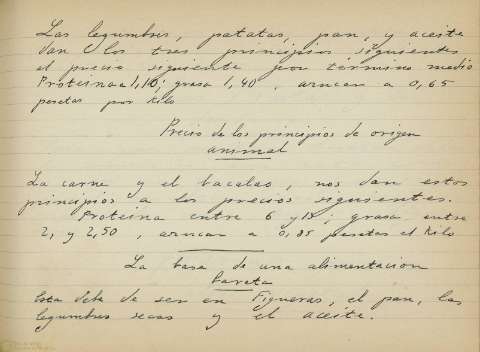 Las legumbres, patatas, pan, y aceite
dan los tres principios siguientes
al precio siguiente por término medio
Proteina a 1,10; grasa 1,40, azucar a 0,65
pesetas por kilo
Precio de los principios de origen
animal
La carne y el bacalao, nos dan estos
principios a los precios siguientes.
Proteina entre 6 y 15; grasa entre
2, y 2,50, azucar a 0,85 pesetas el Kilo
La base de una alimentacion
bareta
Esta debe de ser en Figueras, el pan, las
legumbres secas y el aceite.